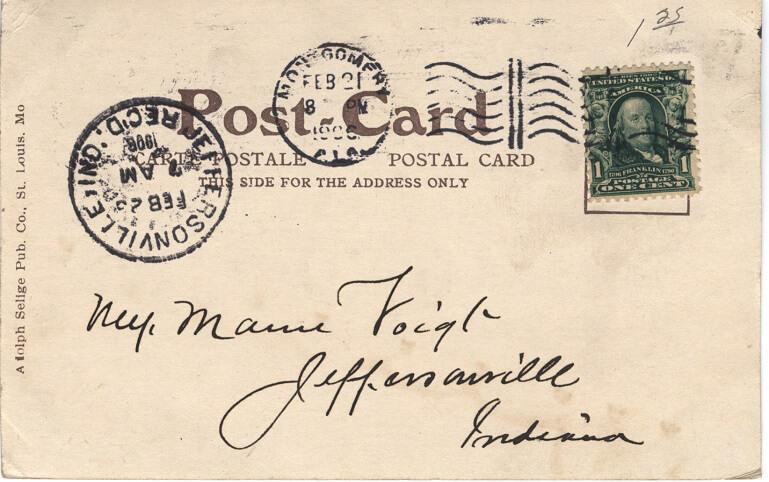 1 25
MONTGOMERY
FEB 21
8 PM
1906
ALA.
Post-Card
CARTE POSTALE POSTAL CARD
THIS SIDE FOR THE ADDRESS ONLY
JEFFERSONVILLE, IND.
REC'D.
FEB 23
7 AM
1906
SERIES 1902
UNITED STATES OF
AMERICA
1 1
1706 FRANKLIN 1790
POSTAGE
ONE CENT
Adolph Selige Pub. Co., St. Louis, Mo
Mamie Voigt
Jeffersonville
Indiana